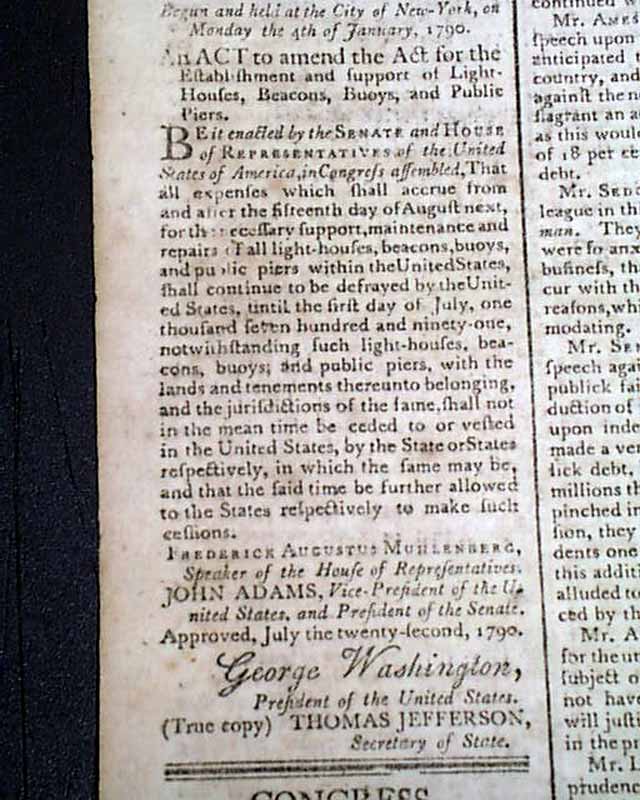 Begun and held at the City of New-York, on
Monday the 4th of January, 1790.
An ACT to amend the Act for the
Eſtabliſhment and ſupport of Light-
Houſes, Beacons, Buoys, and Public
Piers.
BE it enacted by the SENATE and HOUSE
of REPRESENTATIVES of the United
States of America, in Congreſs aſſembled, That
all expenſes which ſhall accrue from
and after the fifteenth day of Auguſt next,
for the neceſſary ſupport, maintenance and
repairs of all light-houſes, beacons, buoys,
and public piers within the United States,
ſhall continue to be defrayed by the Unit-
ed States, until the firſt day of July, one
thouſand ſeven hundred and ninety-one,
notwithſtanding ſuch light-houſes, bea-
cons, buoys; and public piers, with the
lands and tenements thereunto belonging,
and the juriſdictions of the ſame, ſhall not
in the mean time be ceded to or veſted
in the United States, by the State or States
reſpectively, in which the ſame may be,
and that the ſaid time be further allowed
to the States reſpectively to make ſuch
ceſſions.
FREDERICK AUGUSTUS MUHLENBERG,
Speaker of the Houſe of Repreſentatives.
JOHN ADAMS, Vice-Preſident of the U-
nited States, and Preſident of the Senate.
Approved, July the twenty-ſecond, 1790.
George Washington,
Preſident of the United States.
(True copy) THOMAS JEFFERSON,
Secretary of State.
CONGRESS
continued
Mr. AMES
ſpeech upon
anticipated
country, and
againſt the
flagrant an
as this would
of 18 per
debt.
Mr.
league in
man. They
were ſo
buſineſs,
cur with the
reaſons,
modating.
Mr.
ſpeech
publick
duction of
upon
made a
debt,
millions
pinched in
they
dents one
this
alluded to
ced by the
Mr.
for the
ſubject
not have
will
in the
Mr.